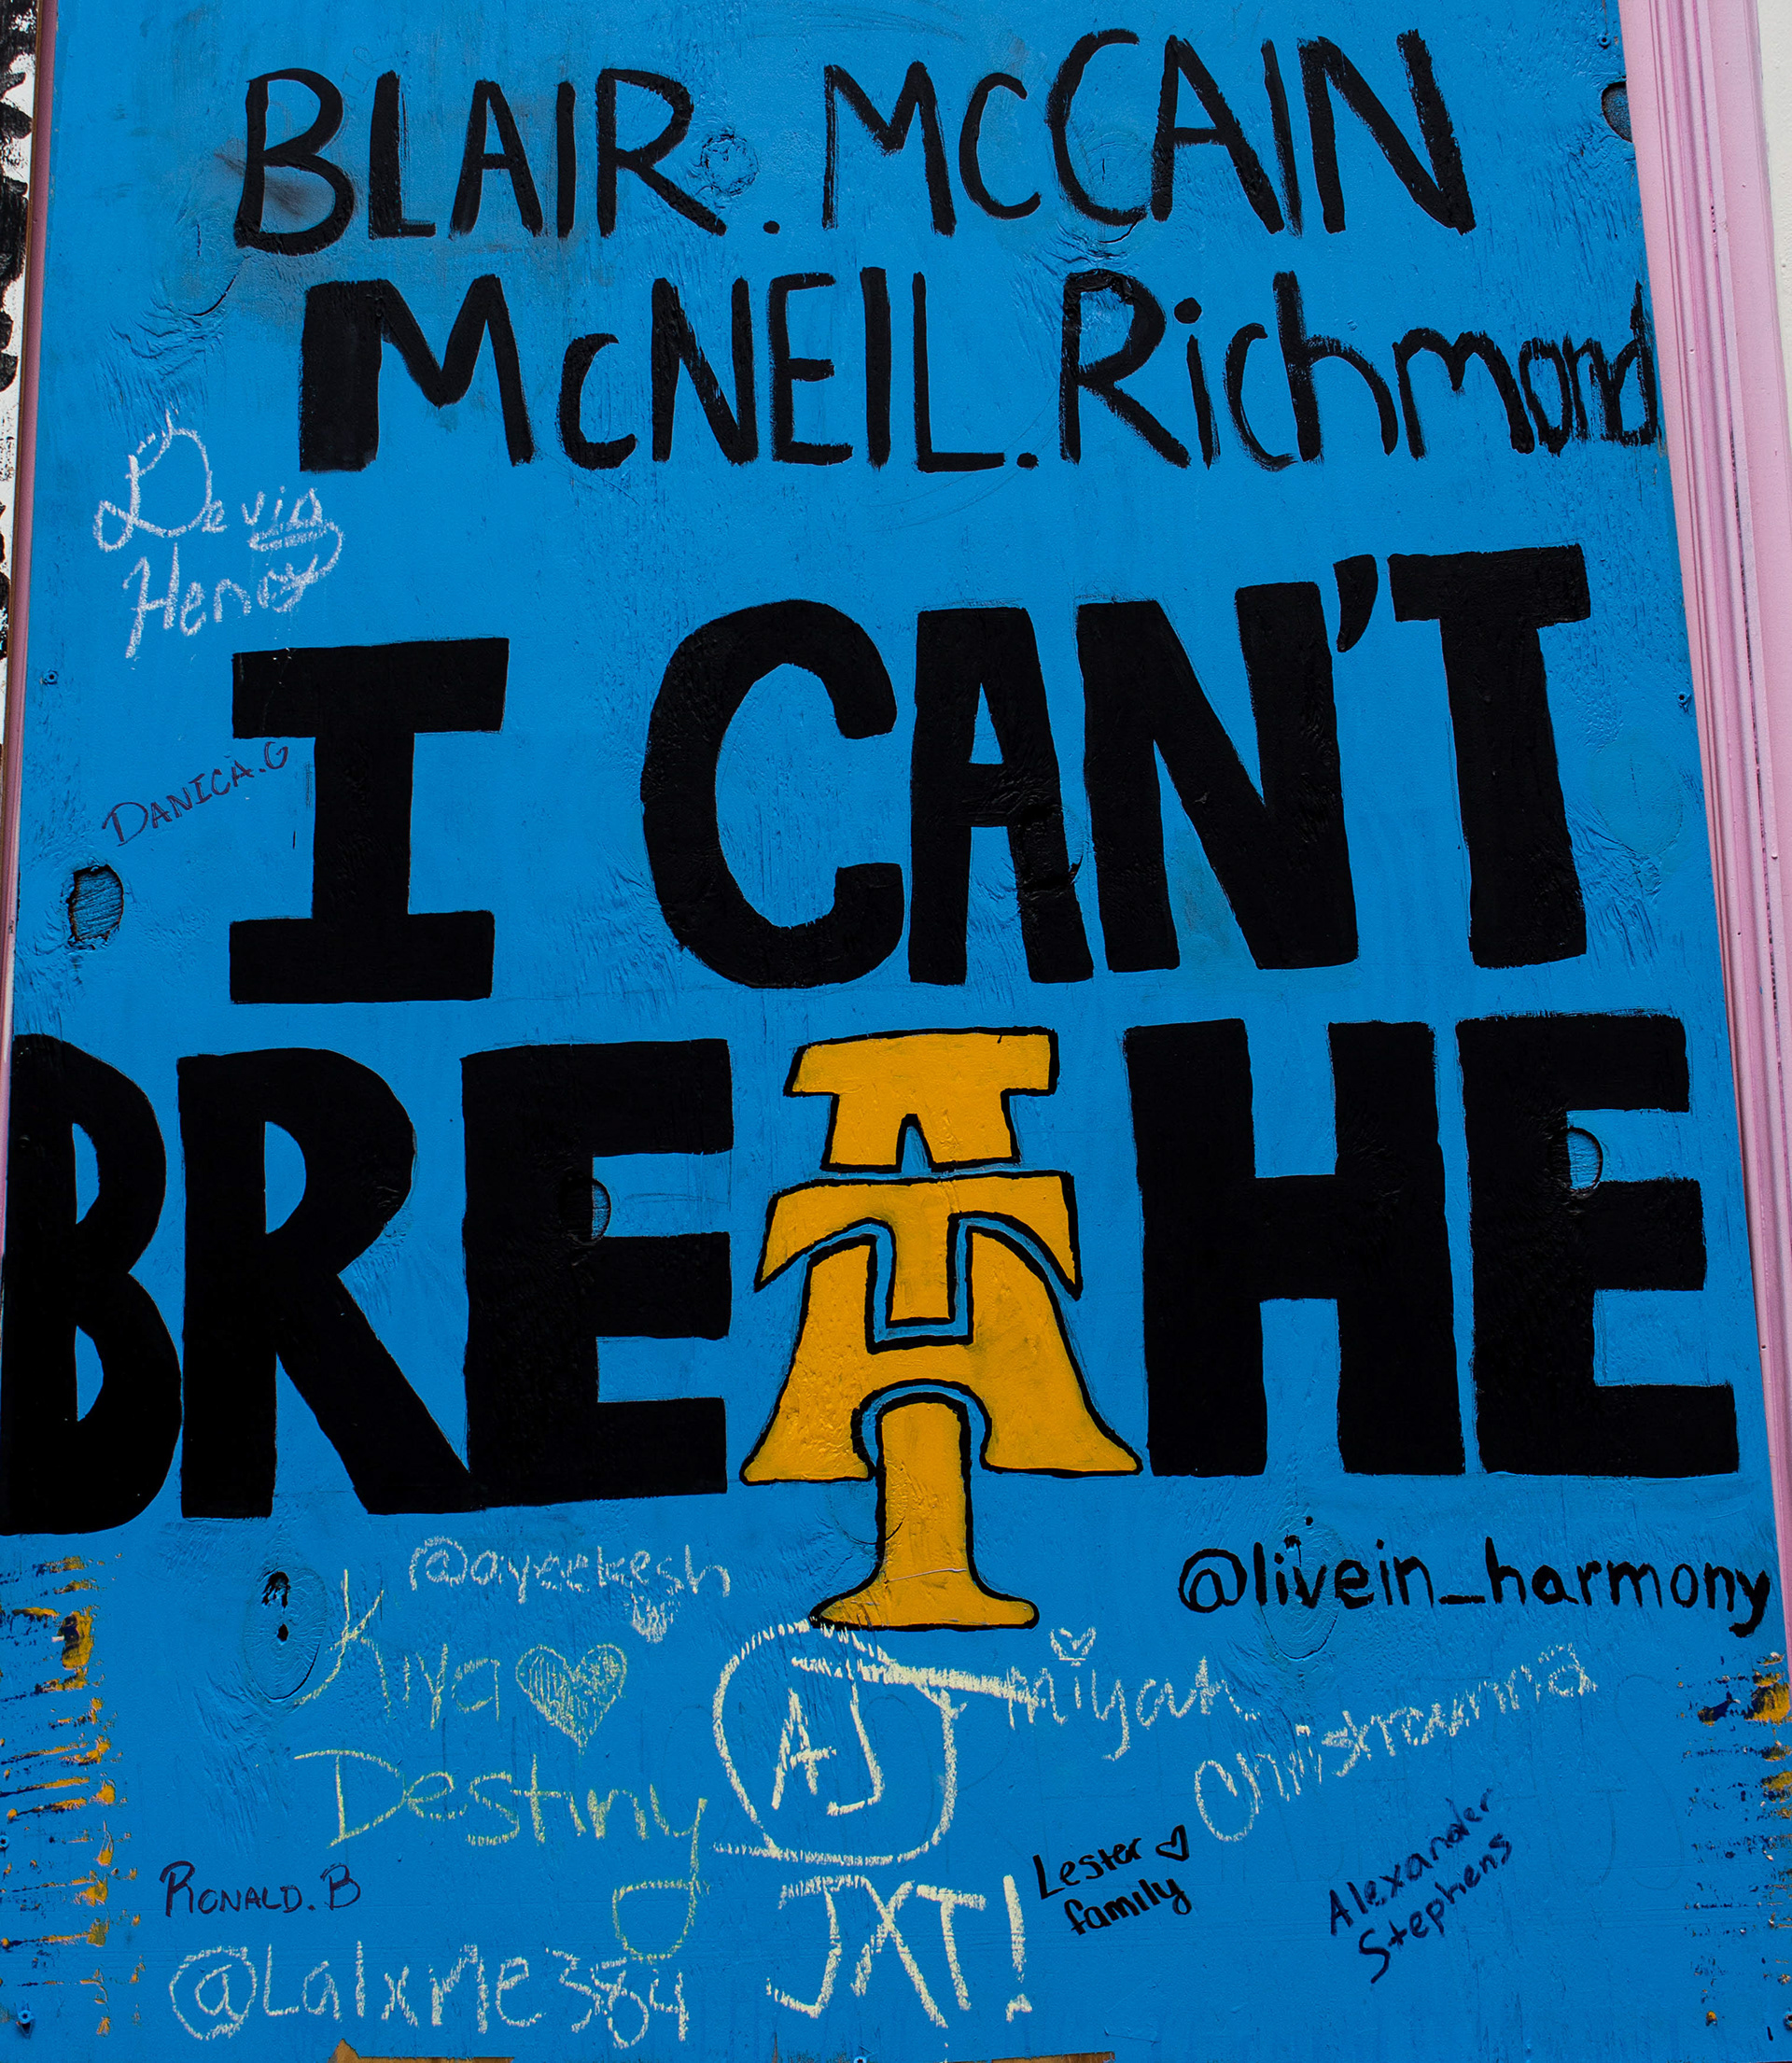 BLAIR. McCAIN
McNEIL. Richmond
Devin
Henry
I CAN'T
DANICA.G
BREATHE
@ayeekesh
@livein_harmony
Kuya
AJ
miyah
Destiny
Lester
family
Alexander
Stephens
RONALD. B
JXT!
@LalxMe384